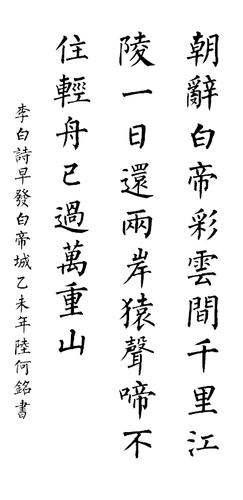 朝辭白帝彩雲間千里江
陵一日還兩岸猿聲啼不
住輕舟已過萬重山
李白詩早發白帝城乙未年陸何銘書